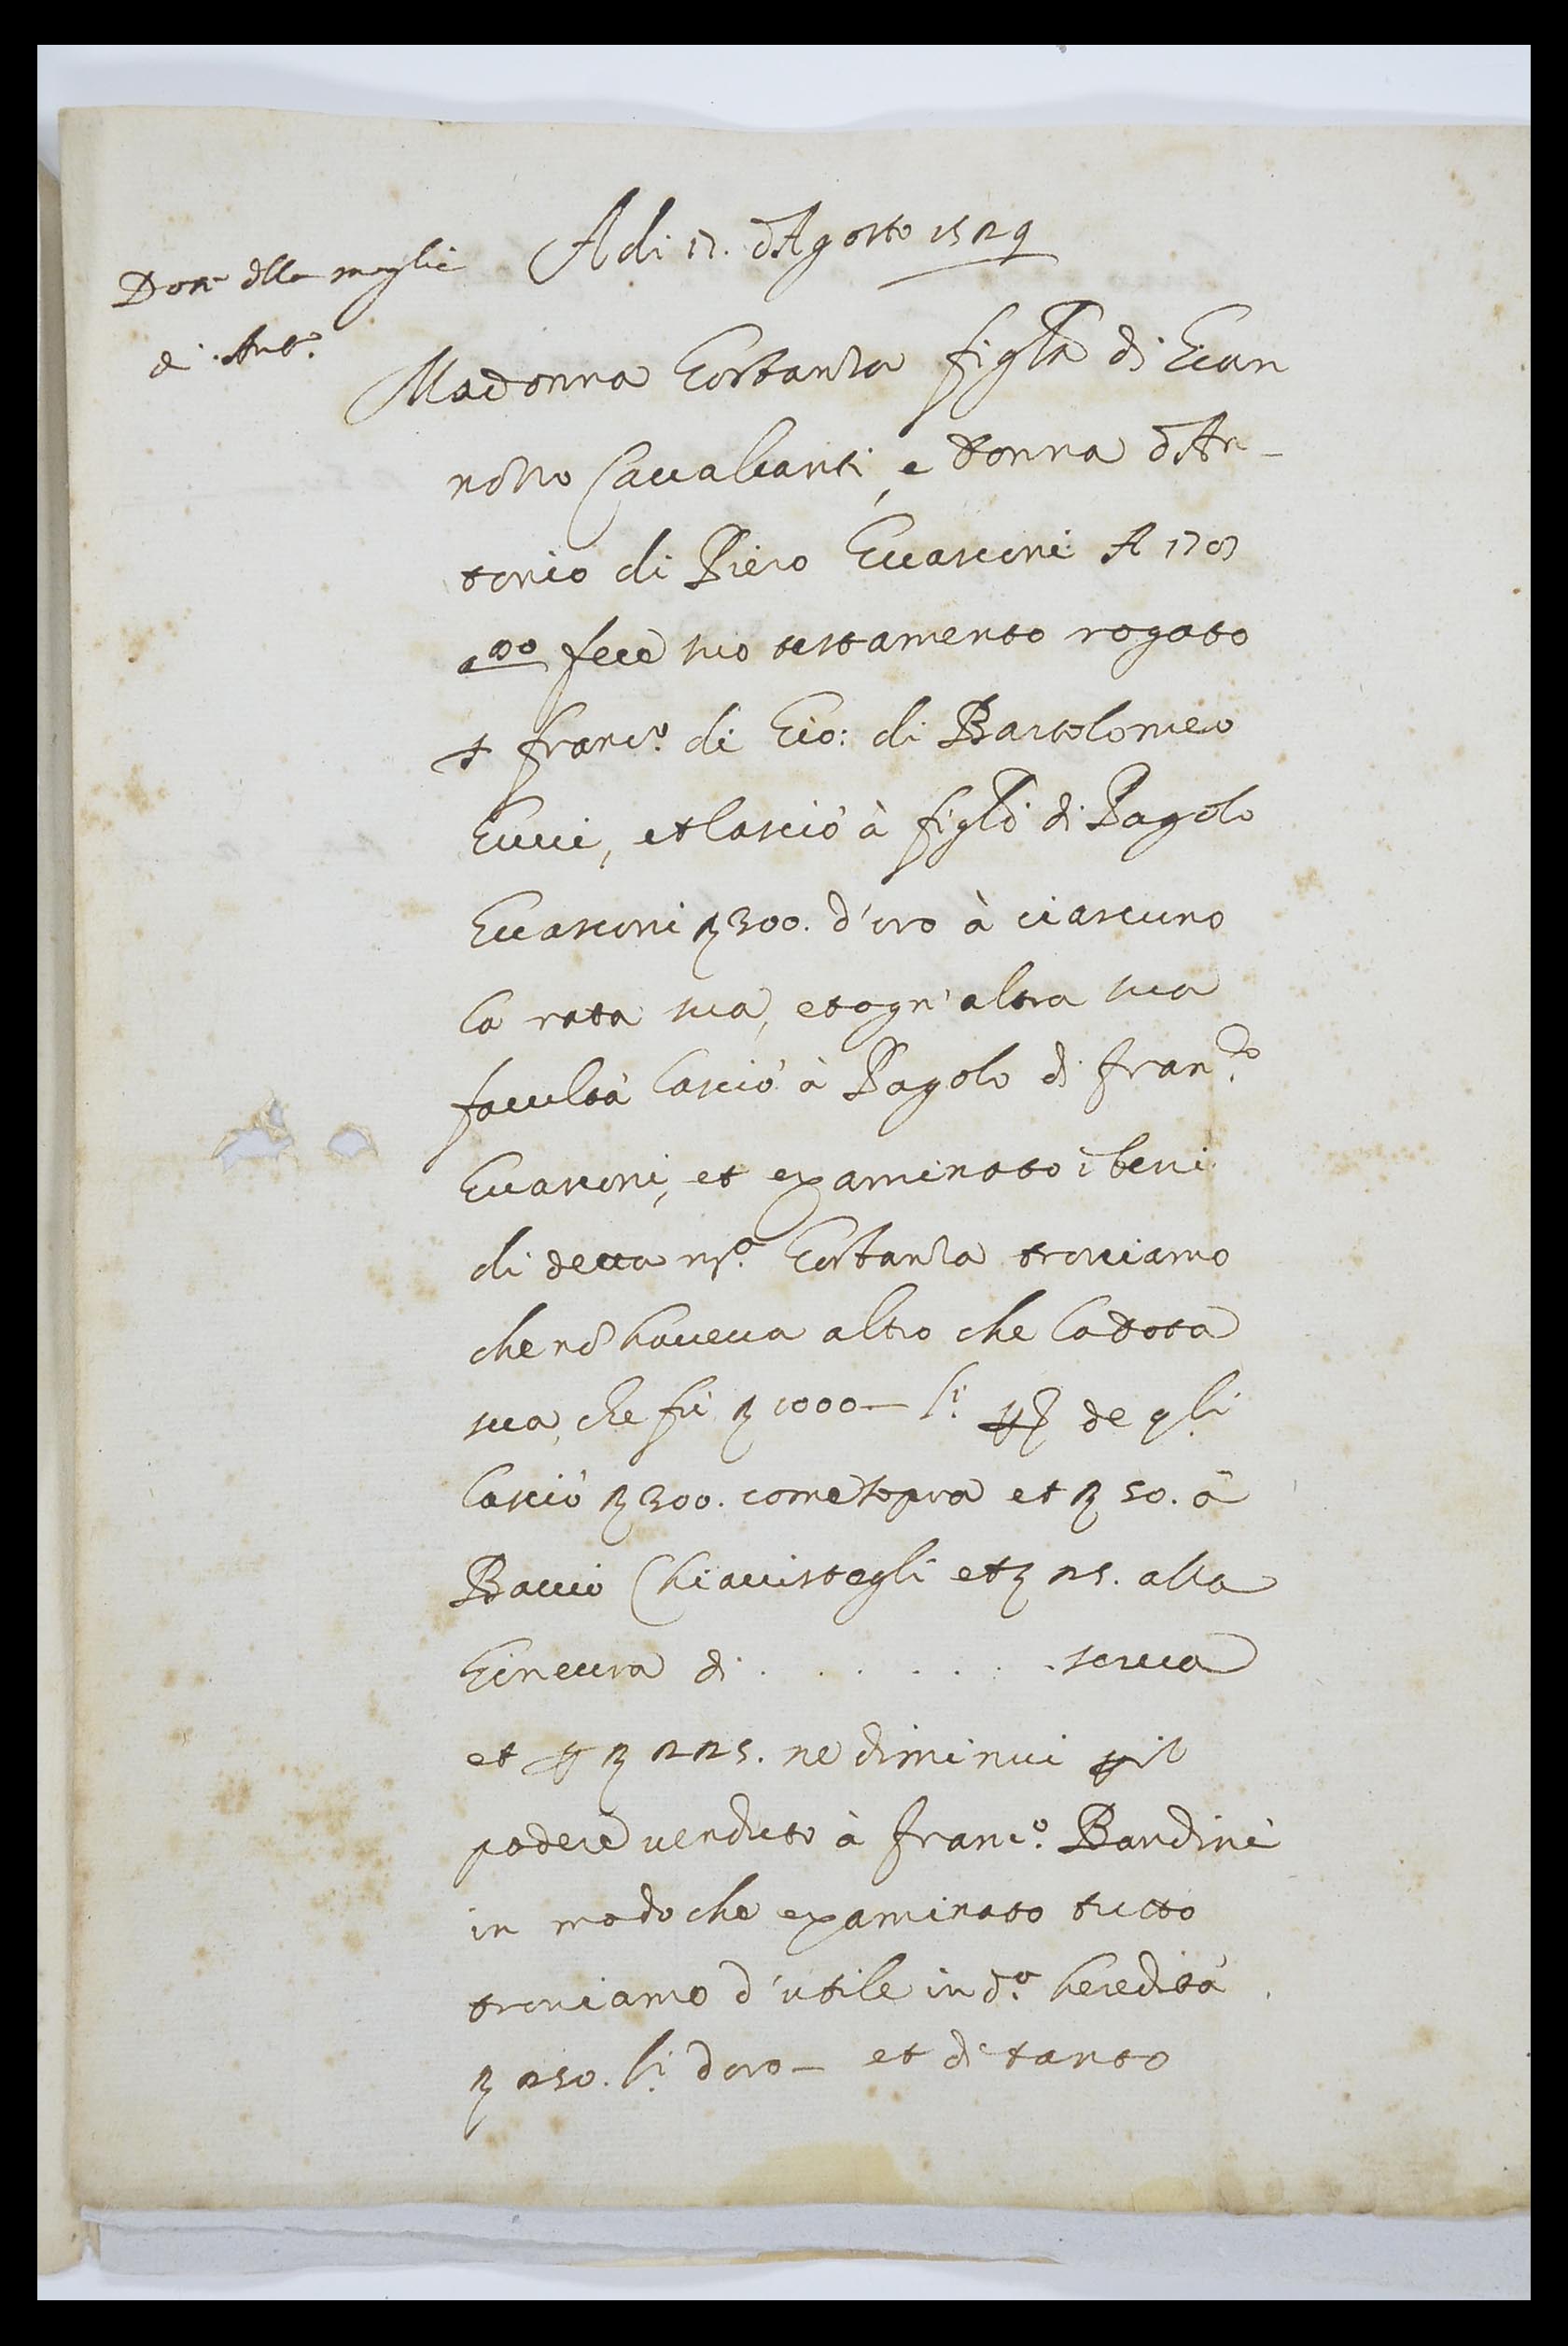 Don.e della moglie
di Ant.o
Adi 17. d'Agosto 1529
Madonna Gostanza figlia di Gian
nozzo Cavalcanti, e donna d'An-
tonio di Piero Guasconi A dì
d.o fece suo testamento rogato
Franc.o di Gio: di Bartolomeo
Gucci, et lasciò à figli di Pagolo
Guasconi 300. d'oro à ciascuno
la rata sua, et ogn'altra sua
facultà lasciò à Pagolo di Fran.co
Guasconi, et examinato i beni
di detta m.a Gostanza troviamo
che nō haveva altro che la dota
sua, che fù 1000— l.i de q.li
lasciò 300. come sopra et 50. à
Baccio Chiavistegli et 25. alla
Ginevra di . . . . . . . serva
et 225. ne diminui il
podere venduto à Franc.o Bandini
in modo che examinato tutto
troviamo d'utile in d.a heredità
250. l.i d'oro— et di tanto